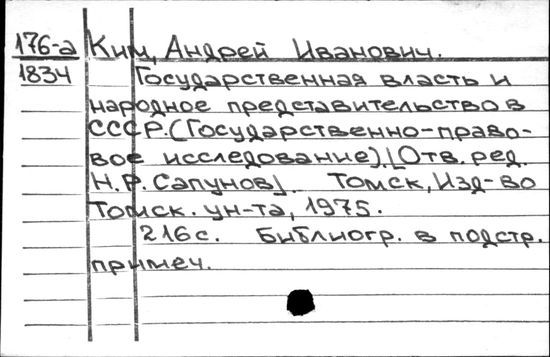 176-а Ким, Андрей Иванович.
1834 Государственная власть и
народное представительство в
СССР. (Государственно-право-
вое исследование). [Отв. ред.
Н.Р. Сапунов]. Томск, Изд-во
Томск. ун-та, 1975.
216 с. Библиогр. в подстр.
примеч.